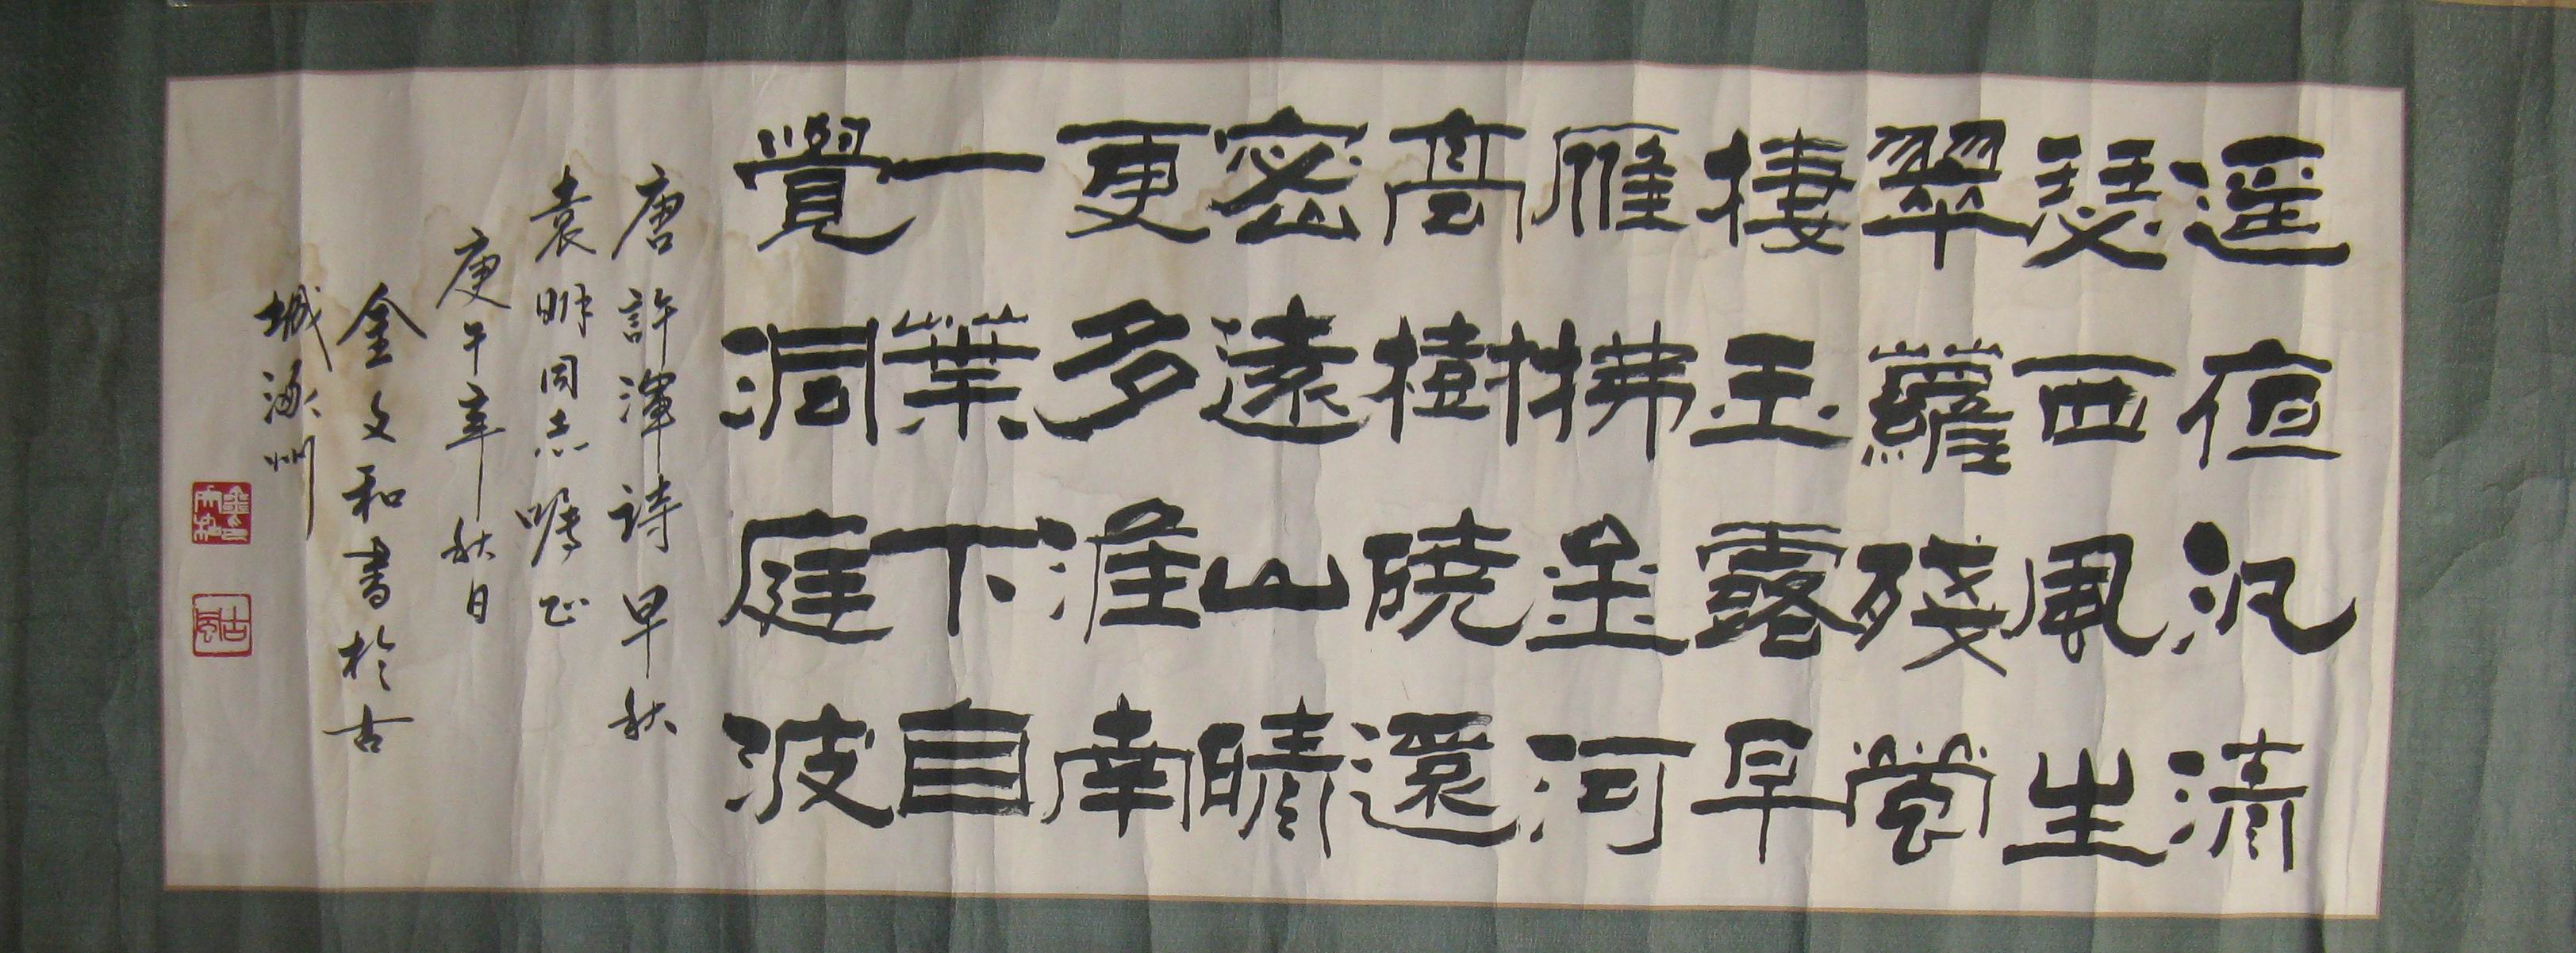 遥夜汎清
瑟西風生
翠蘿殘螢
棲玉露早
雁拂金河
高樹曉還
密遠山晴
更多淮南
一葉下自
覺洞庭波
唐許渾詩早秋
袁明同志囑正
庚午年秋日
金文和書於古
城涿州